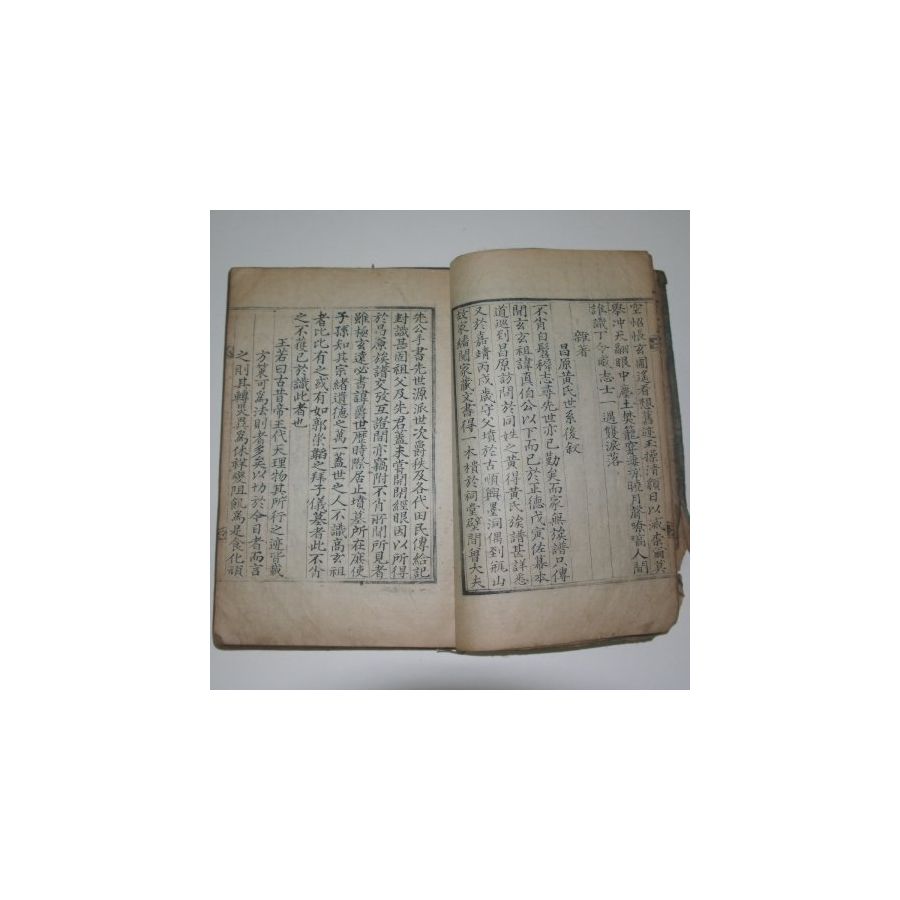 空怊悵玄圃遙看
擧冲天翮眼中塵土焚籠窄毒凉曉月聲嘹嚆人間
誰識丁令威志士一過雙淚落
雜著
昌原黃氏世系後叙
不肖自髫稚志專先世亦已勤矣而家無族譜只傳
聞玄玄祖諱直伯公以下而已於正德戊寅佐幕本
道巡到昌原訪問於同姓之黃得黃氏族譜甚詳悉
又於嘉靖丙戌歲守父墳於古順興墨洞偶到瓶山
故家繙閱家藏文書得一木樻於祠堂壁間曾大夫
先公手書先世源派世次爵秩及各代田民傳給記
封識甚固祖父及先君蓋未嘗開閱經眼因以所得
於昌原族譜交攷互證間亦竊附不肖所聞所見者
雖極玄遠必書諱爵世歷時際居止墳墓所在庶使
子孫知其宗緒遺德之萬一蓋世之人不識高玄祖
者比比有之或有如郭崇韜之拜子儀墓者此不肖
之不獲已於識此者也
王若曰古昔帝王代天理物其所行之迹皆載
方策可爲法則者多矣以切於今日者而言
之則其轉災爲休祥變阻飢爲足食化頑